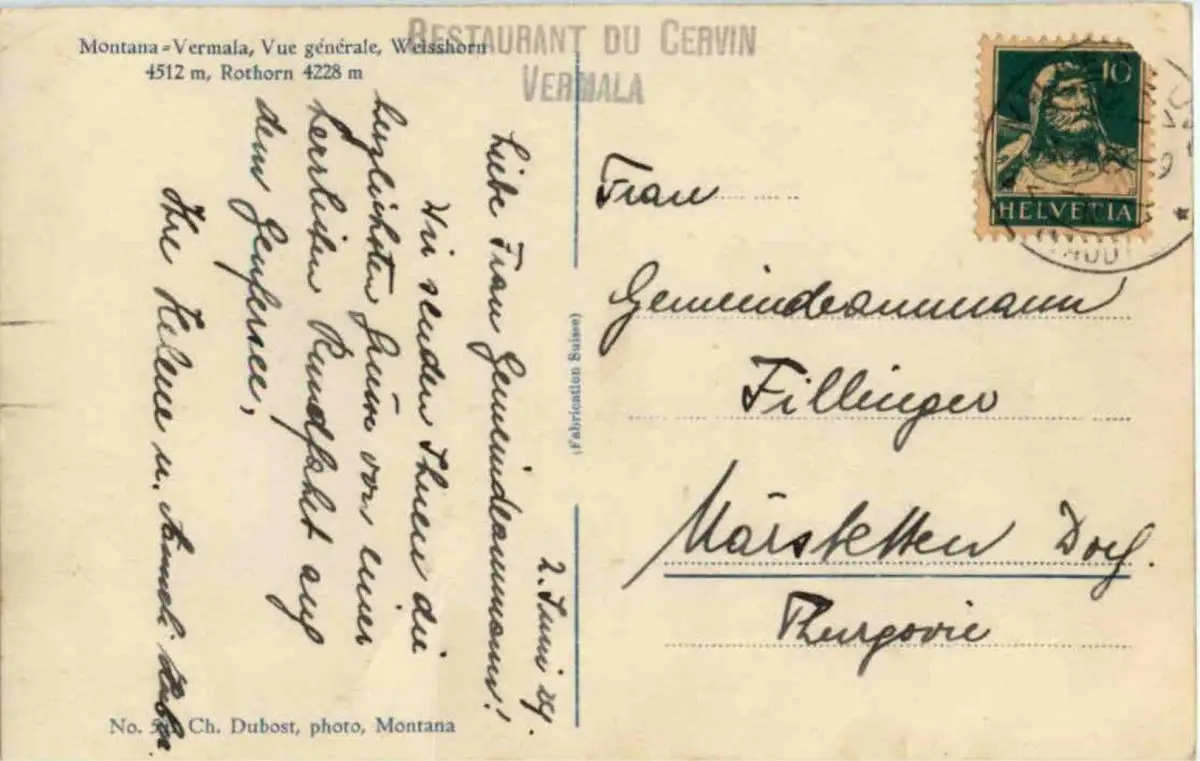 Montana-Vermala, Vue générale, Weisshorn
4512 m, Rothorn 4228 m
RESTAURANT DU CERVIN
VERMALA
2. Juni 29.
Liebe Frau Gemeindeammann!
Wir senden Ihnen die
herzlichsten Grüsse von einer
herrlichen Rundfahrt auf
dem Genfersee,
Ihre Helene u.
No. Ch. Dubost, photo, Montana
(Fabrication Suisse)
10
HELVETIA
Frau
Gemeindeammann
Fillinger
Märstetten Dorf.
Thurgovie